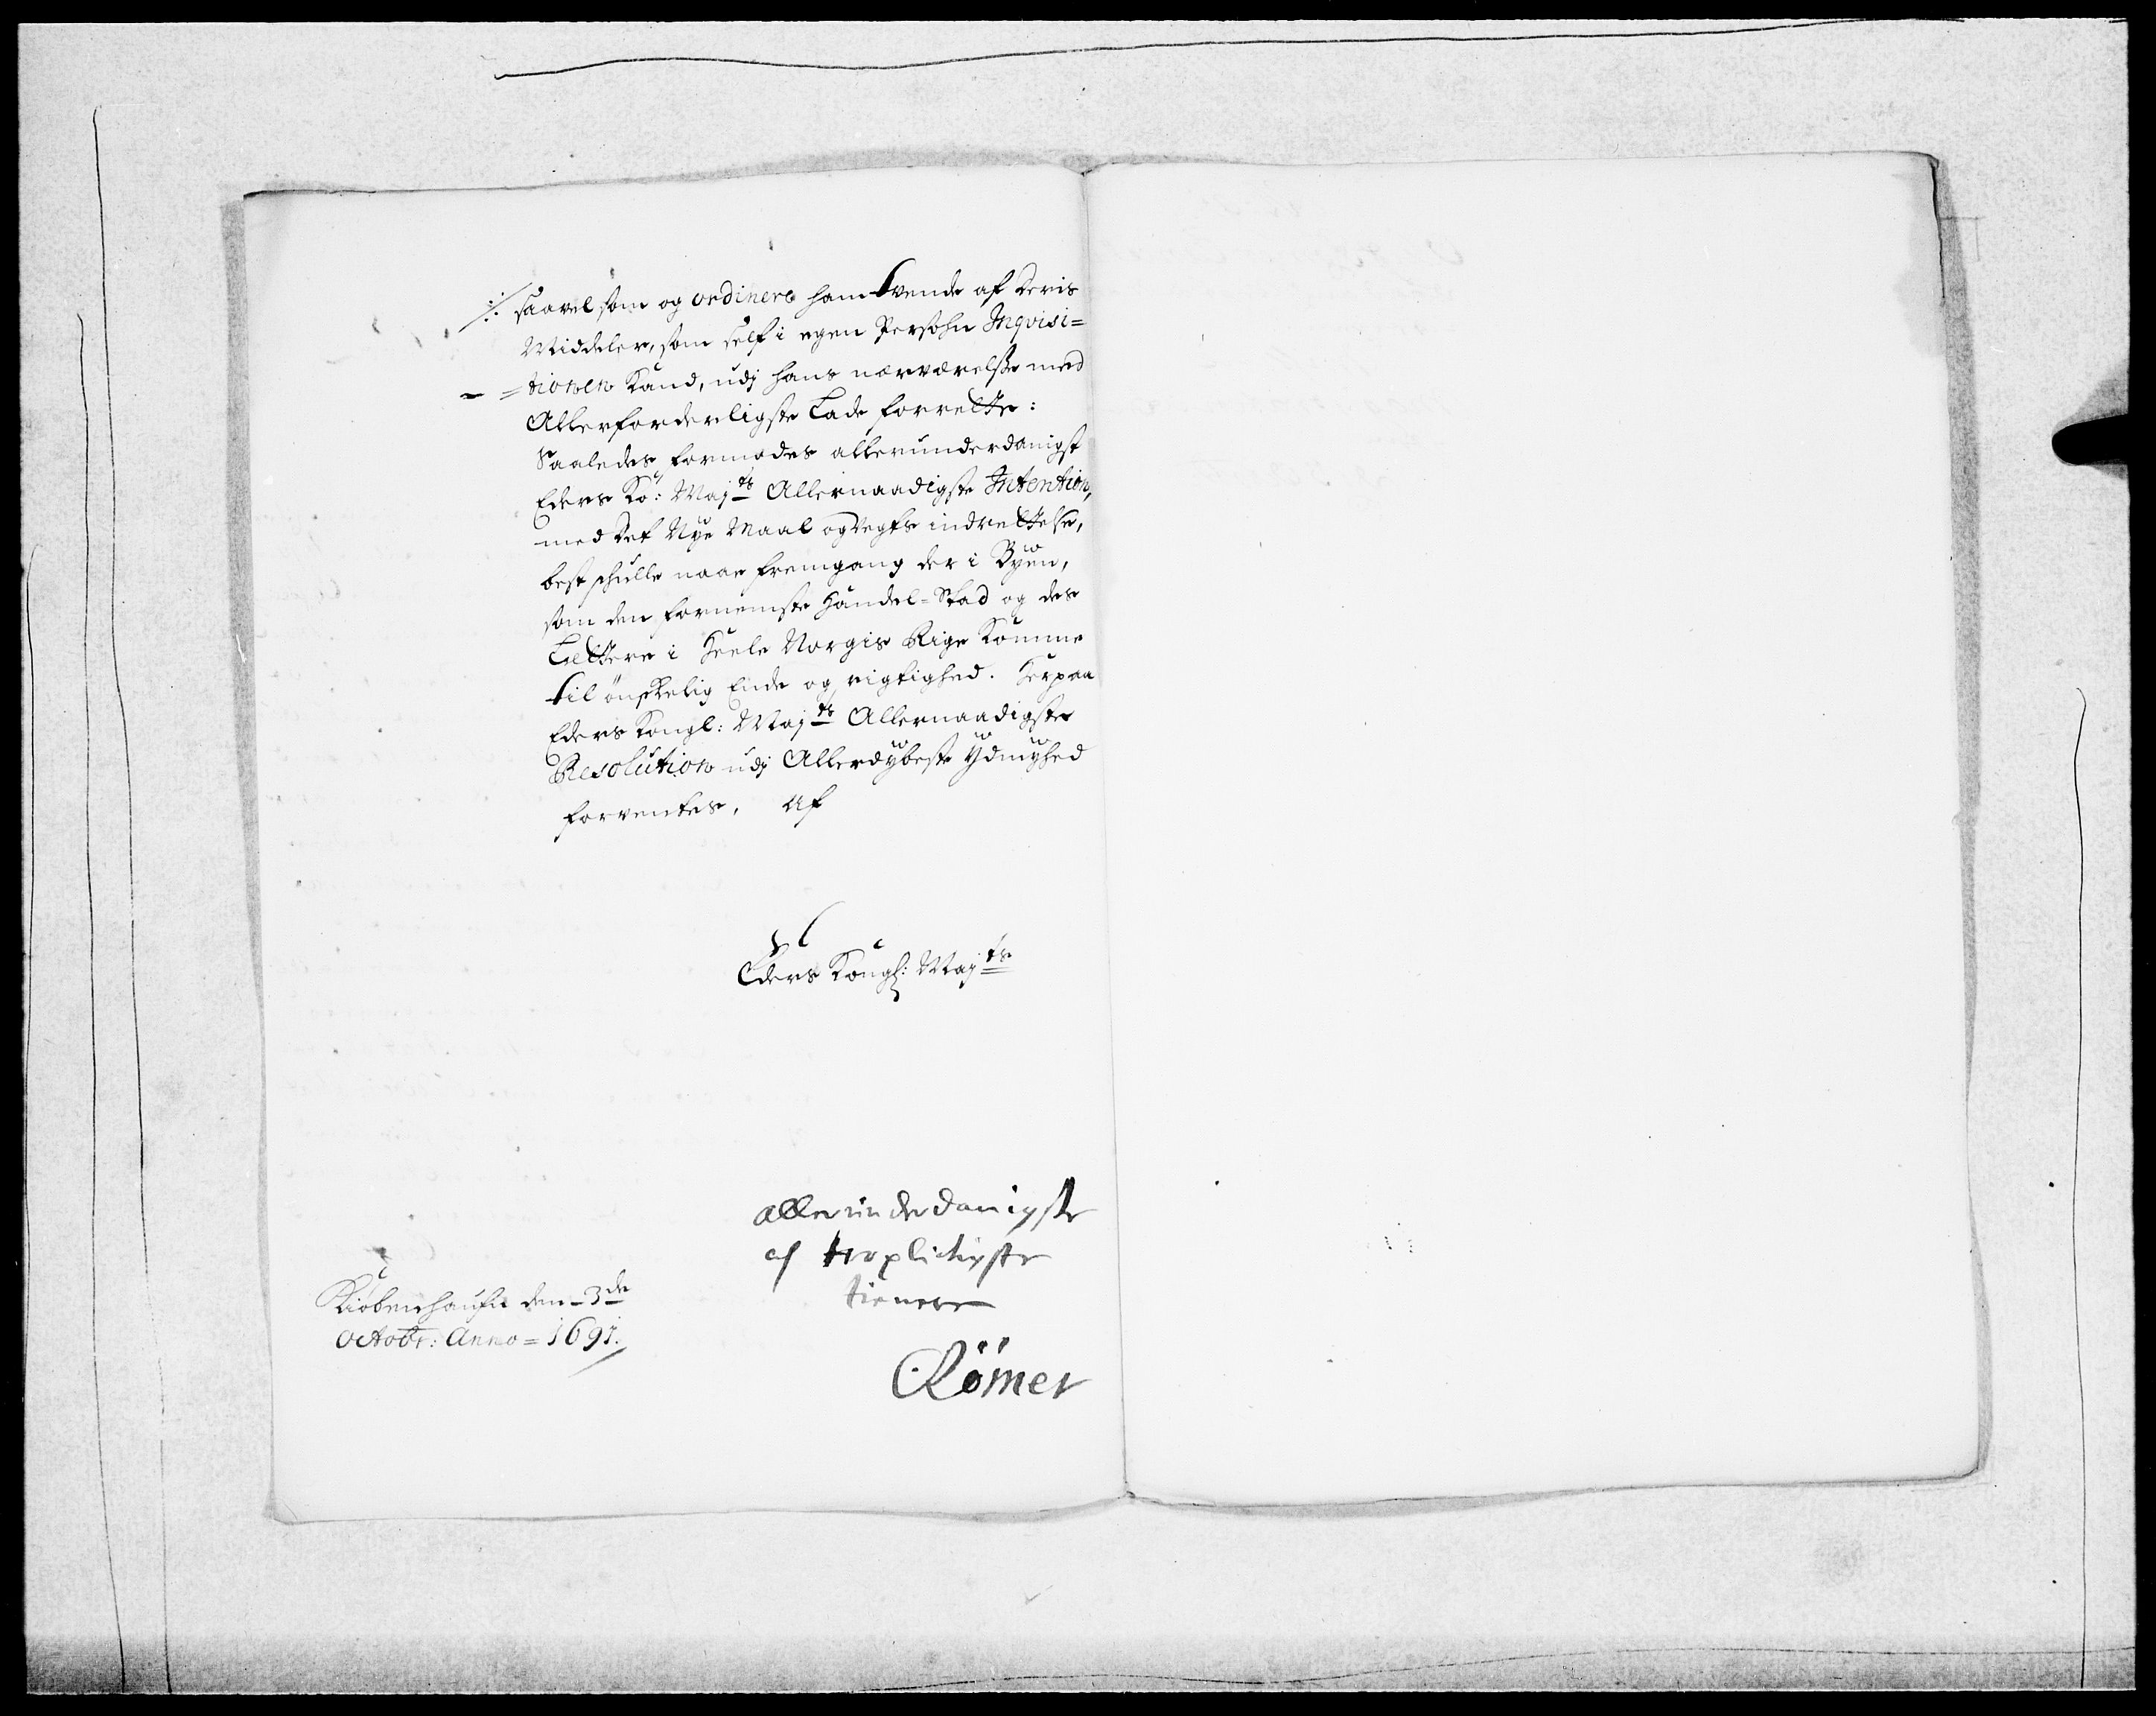 saavelsom og ordinere ham tvende af Deris
Middeler, som self i egen Persohn Inqvisi=
=tionen kand, udj hans nærværelse med
Allerforderligste Lade forrette:
Saaledes formodes allerunderdanigst
Eders Ko: Majts Allernaadigste Intention,
med det Nye Maal og vegts indrettelse,
best schulle naae fremgang der i Byen,
som den fornemste Handel=Stad og des
Lettere i heele Norgis Rige komme
til ønskelig Ende og rigtighed. herpaa
Eders Kongl: Majts Allernaadigste
Resolution udj Allerdybeste ydmyghed
forventes, Af
Eders Kongl: Majts
allerunderdanigste
og troplictigste
tienere
Römer
Kiøbenhaufn den 3de
Octobr: Anno = 1691.